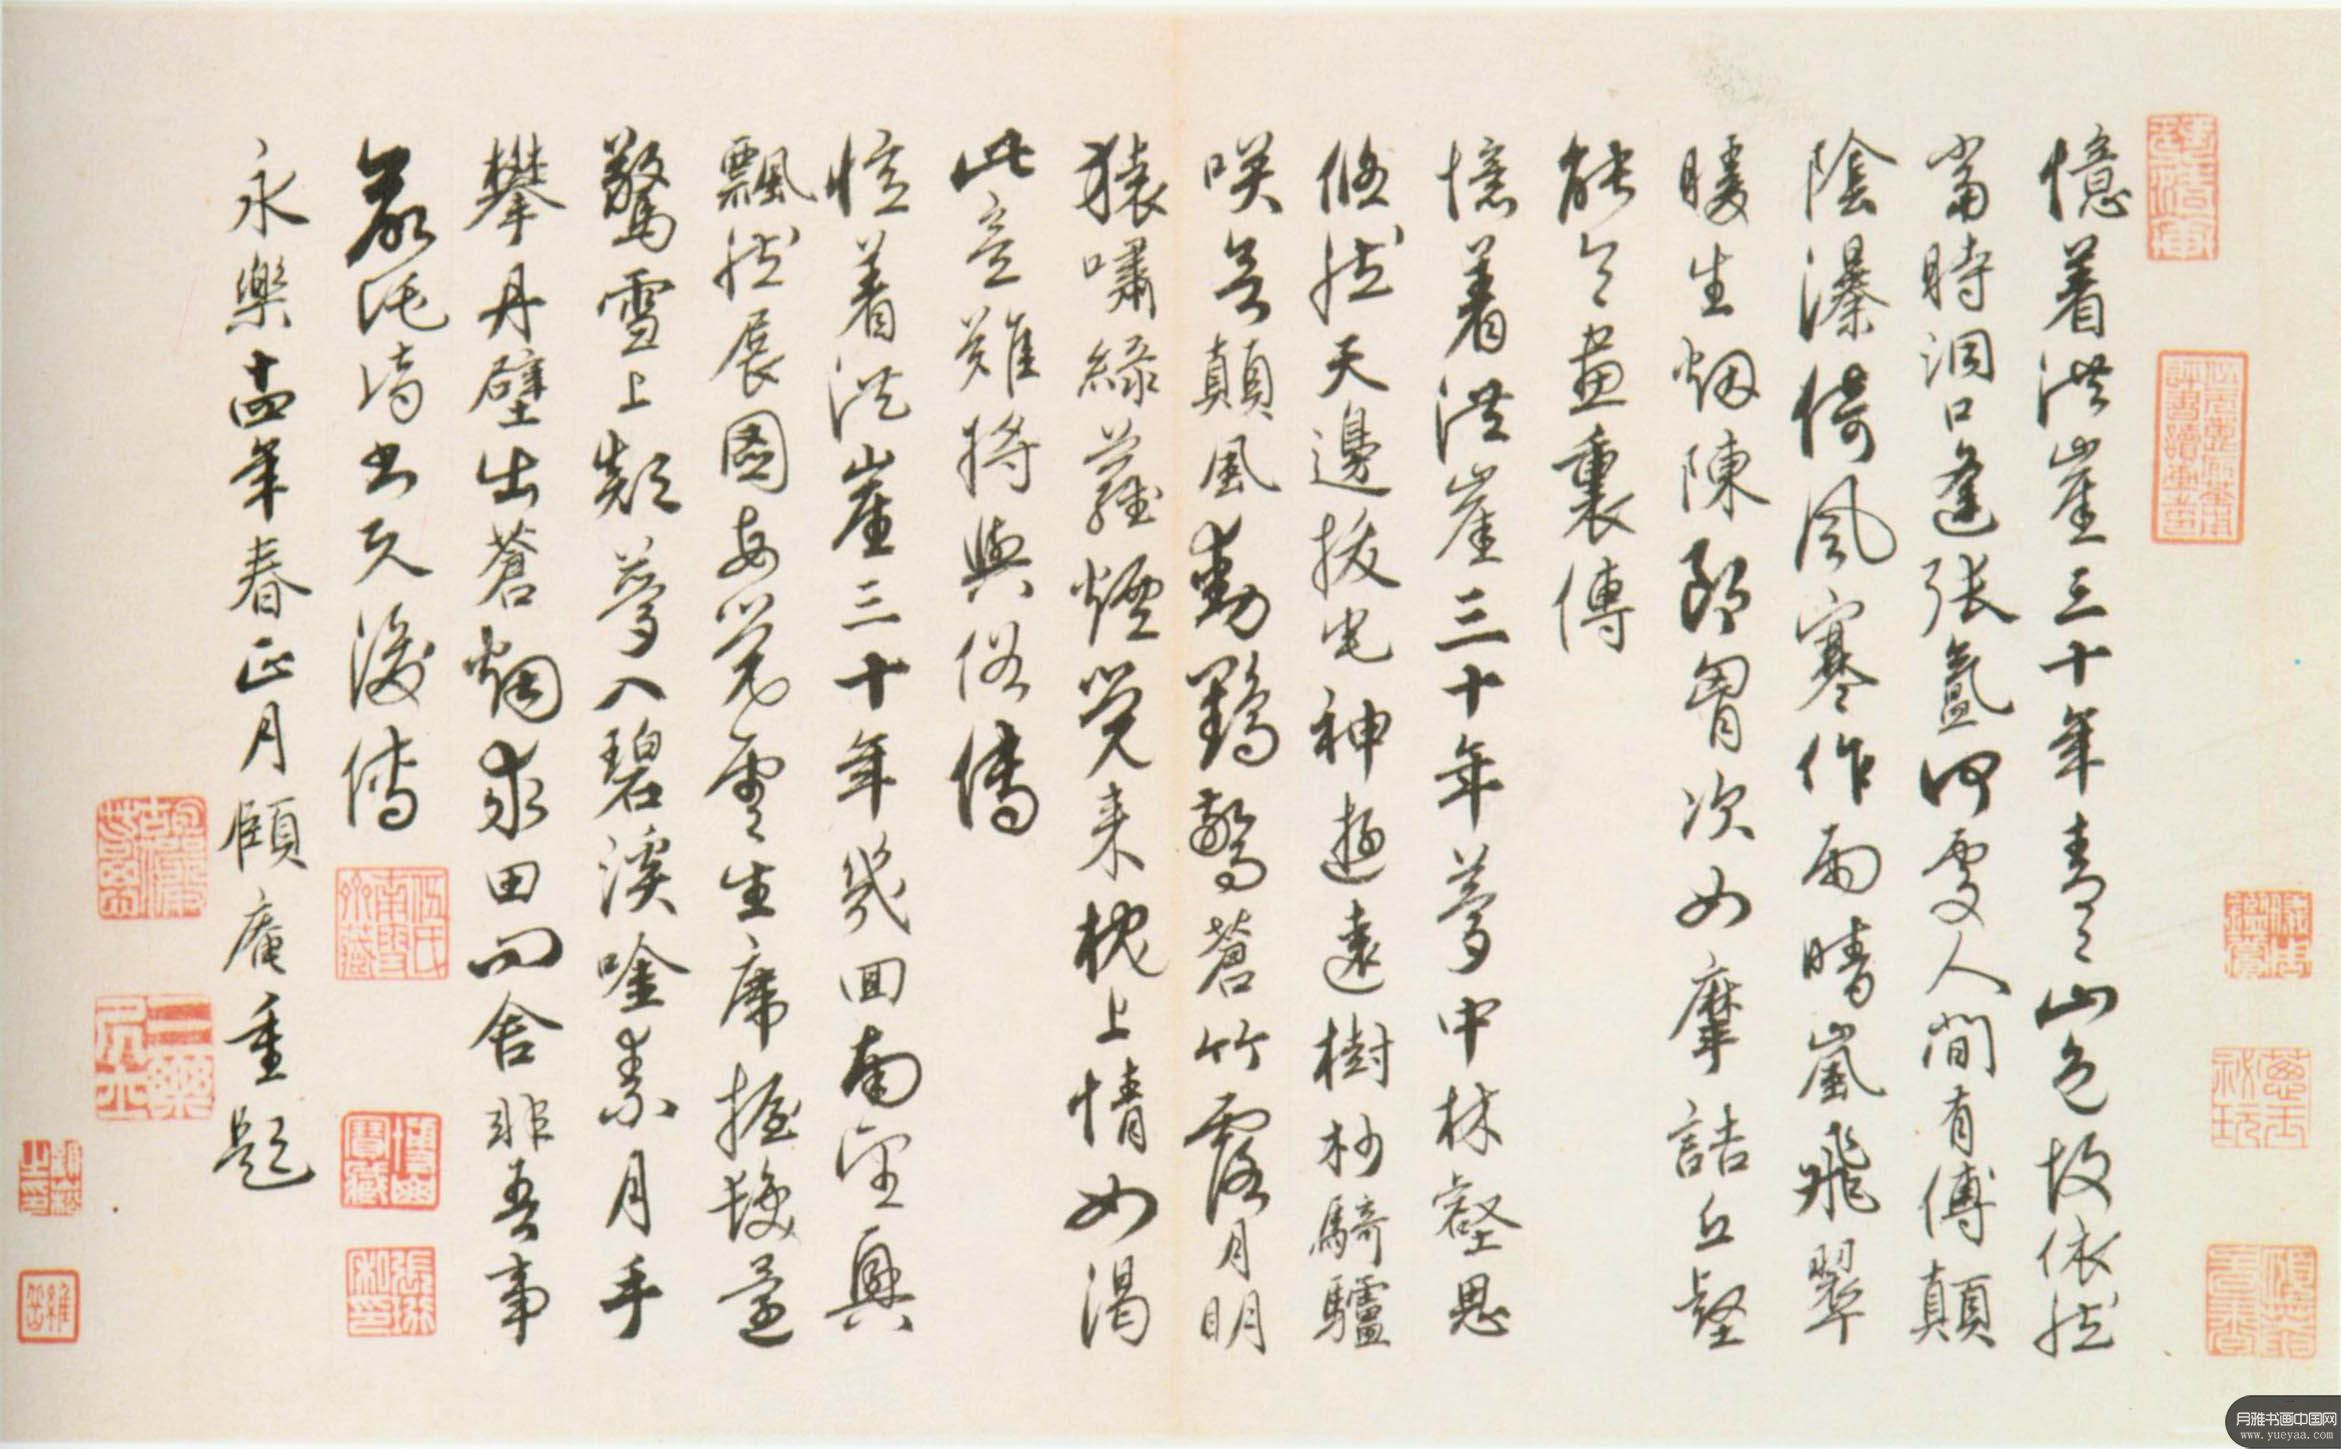 憶着洪崖三十年青々山色故依然
當時洞口逢張氳何處人間有傅顛
陰瀑倚風寒作雨晴嵐飛翠
暖生烟陳郎胷次如摩詰丘壑
能令畫裏傳
憶着洪崖三十年夢中林壑思
悠然天邊拔宅神遊遠樹杪騎驢
咲各顛風動鶴驚蒼竹露月明
猿嘯綠蘿煙覺来枕上情如渴
此意難將與俗傳
憶着洪崖三十年幾回南望興
飄然展圖每覺雲生席握
驚雪上顛夢入碧溪唫素月手
攀丹壁出蒼烟求田問舍非吾事
永樂十四年春正月頤庵重題
月雅书画中国网
www.yueyaa.com